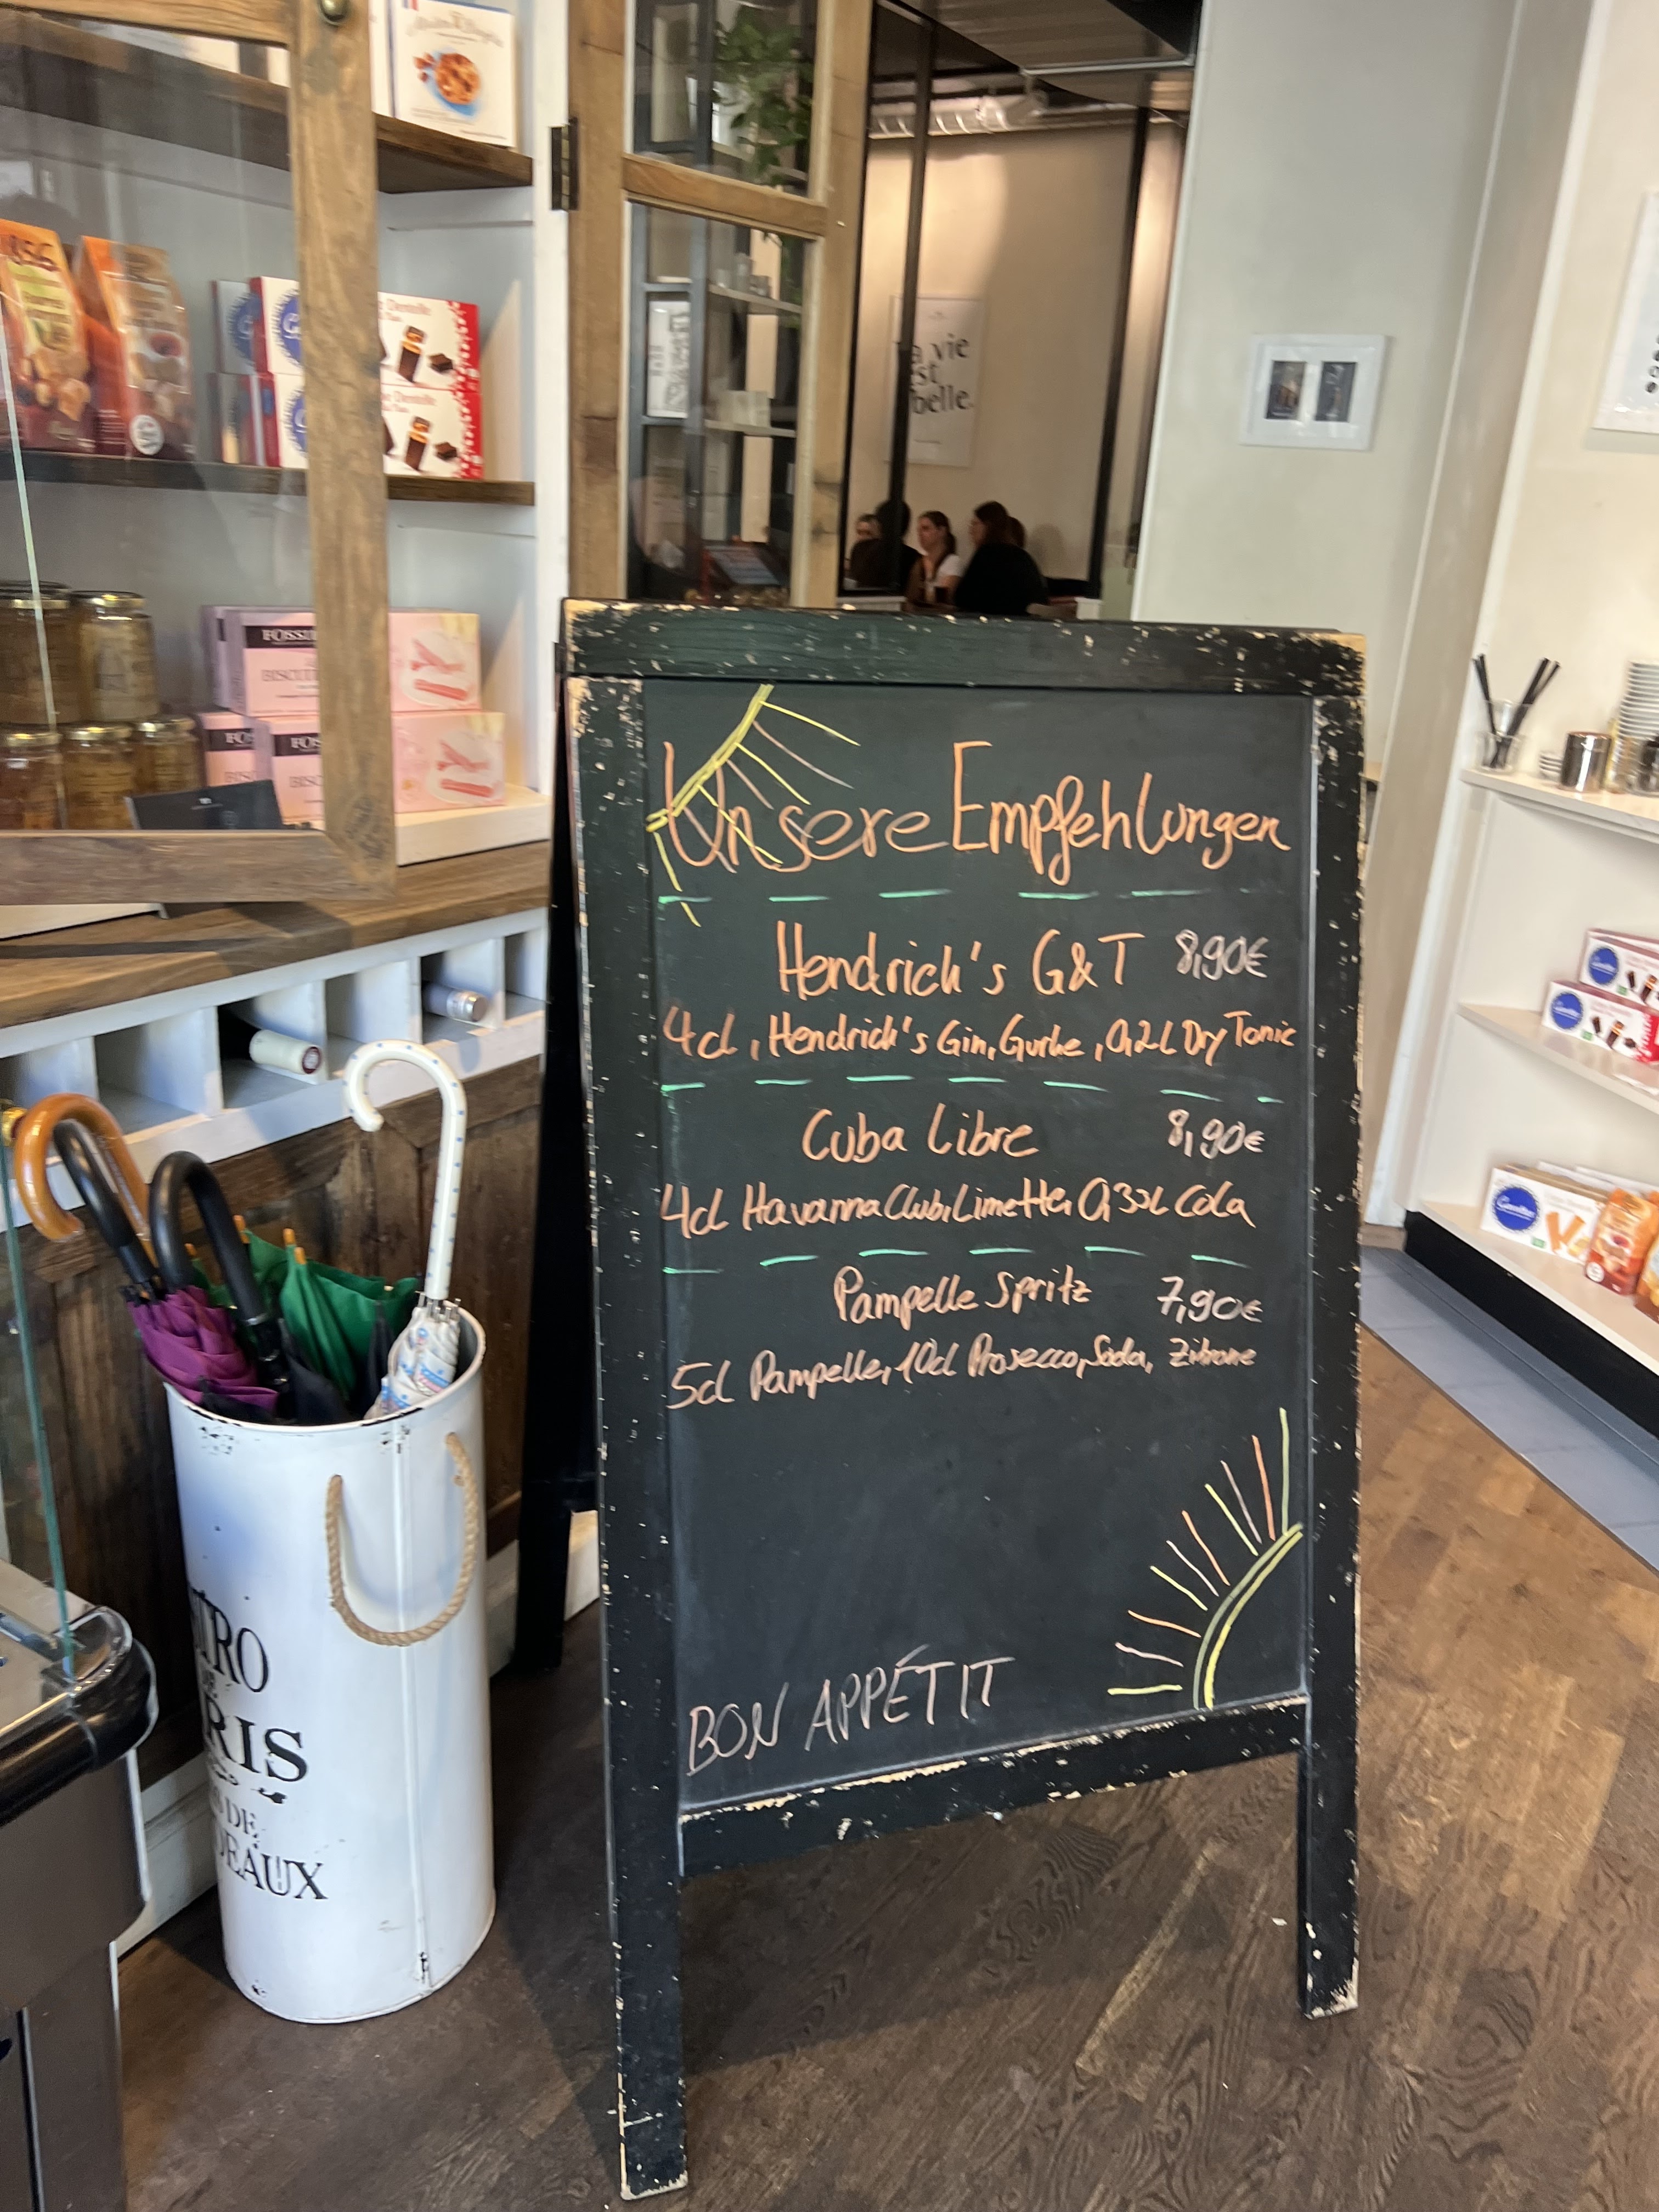 Unsere Empfehlungen
Hendrick's G&T 8,90€
4cl, Hendrick's Gin, Gurke, 0,2L Dry Tonic
Cuba Libre 8,90€
4cl Havanna Club, Limette, 0,33L Cola
Pampelle Spritz 7,90€
5cl Pampelle, 10cl Prosecco, Soda, Zitrone
BON APPÉTIT
vie
belle.
1856
Dentelle
Dentelle
FOSSI
BISCUI
FOS